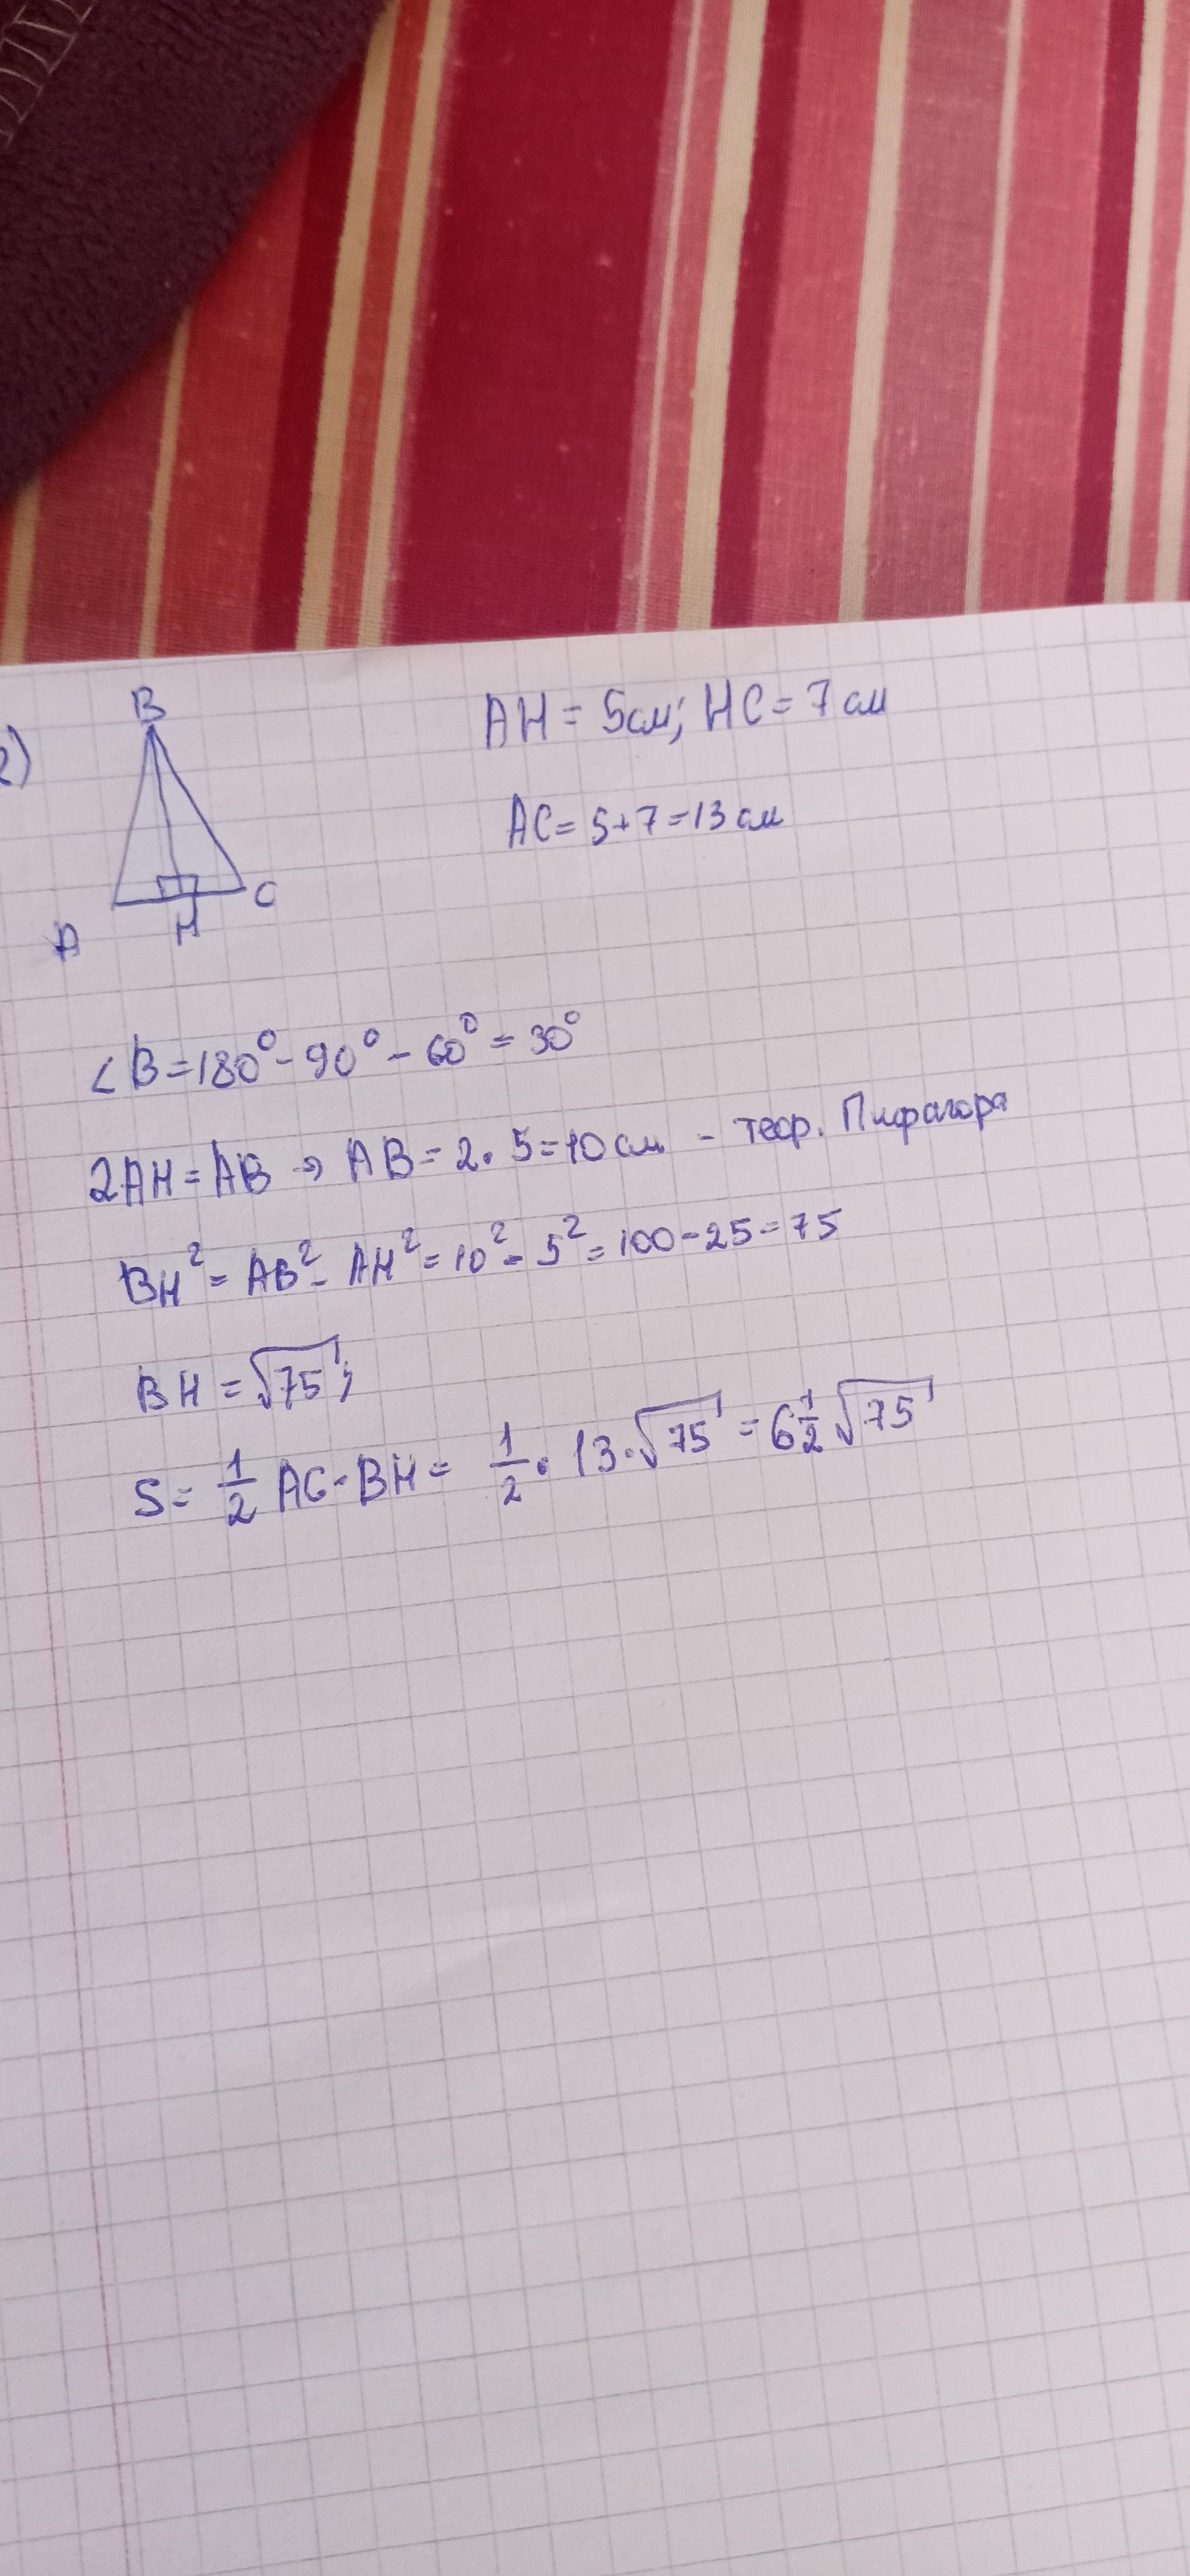 2)
B
A
H
C
AH = 5см; HC = 7 см
AC = 5+7=13 см
∠B=180°-90°-60°=30°
2AH=AB → AB=2·5=10см - теор. Пифагора
BH²=AB²-AH²=10²-5²=100-25=75
BH=√75;
S=1/2 AC·BH= 1/2·13·√75=6 1/2 √75